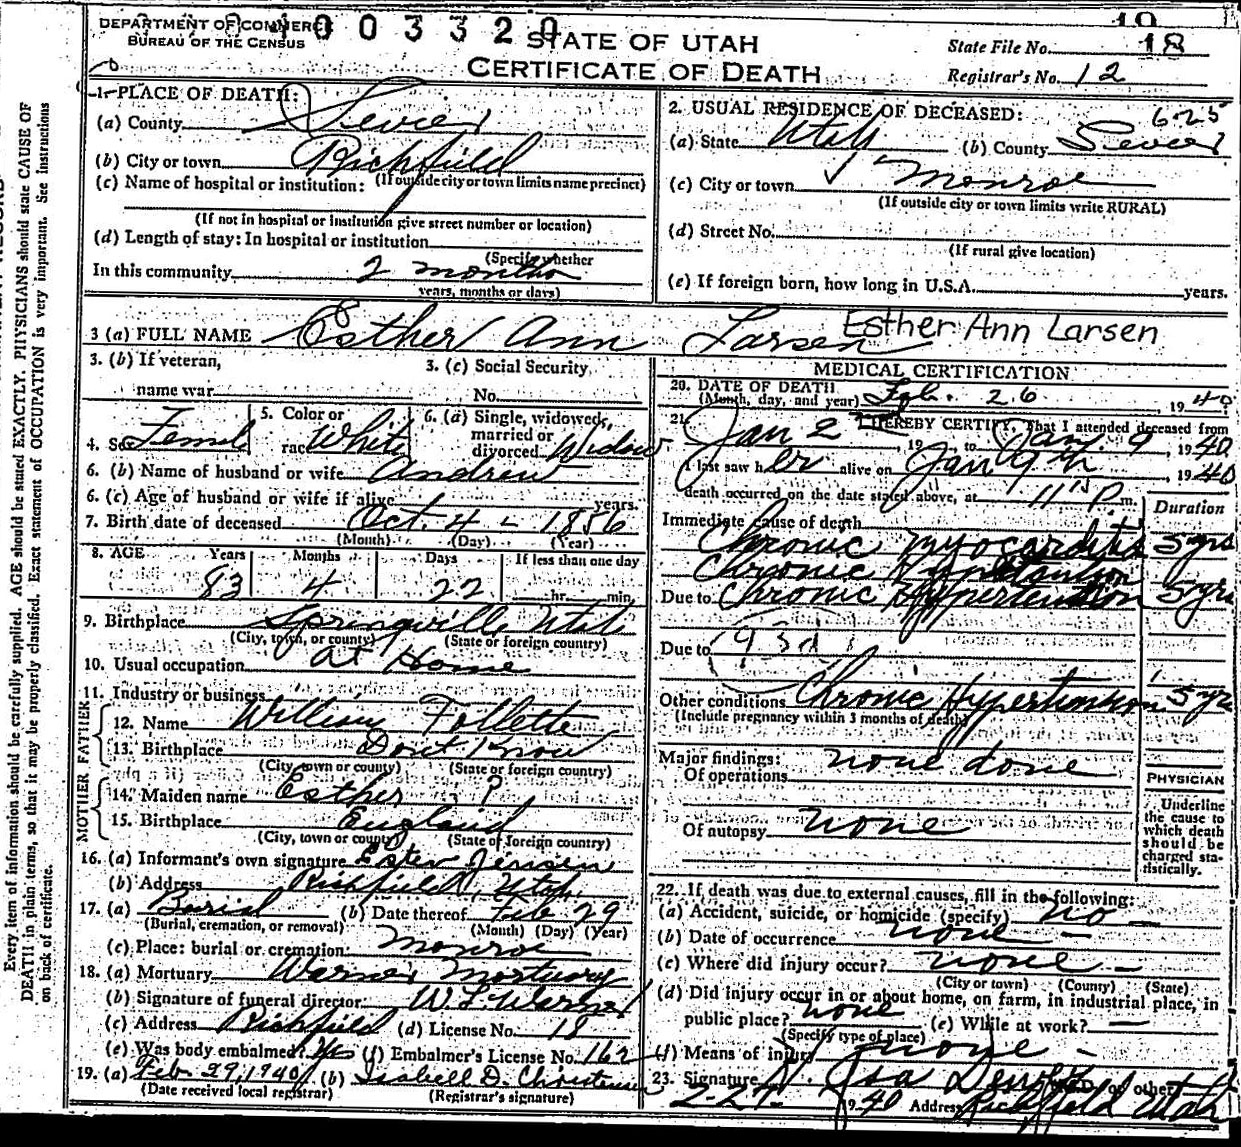 DEPARTMENT OF COMMERC
BUREAU OF THE CENSUS
1003320
STATE OF UTAH
CERTIFICATE OF DEATH
19
State File No. 18
Registrar's No. 12
1. PLACE OF DEATH:
(a) County Sevier
(b) City or town Richfield
(If outside city or town limits name precinct)
(c) Name of hospital or institution:
(If not in hospital or institution give street number or location)
(d) Length of stay: In hospital or institution
(Specify whether
In this community 2 months
years, months or days)
2. USUAL RESIDENCE OF DECEASED: 625
(a) State Utah (b) County Sevier
(c) City or town Monroe
(If outside city or town limits write RURAL)
(d) Street No.
(If rural give location)
(e) If foreign born, how long in U.S.A. years.
3 (a) FULL NAME Esther Ann Larsen Esther Ann Larsen
3. (b) If veteran,
name war
3. (c) Social Security
No.
4. Sex Femal
5. Color or
race White
6. (a) Single, widowed,
married or
divorced Widow
6. (b) Name of husband or wife Andrew
6. (c) Age of husband or wife if alive years.
7. Birth date of deceased Oct. 4 - 1856
(Month) (Day) (Year)
8. AGE Years Months Days If less than one day
83 4 22 hr. min.
9. Birthplace Springville Utah
(City, town, or county) (State or foreign country)
10. Usual occupation at Home
11. Industry or business
FATHER
12. Name William Follette
13. Birthplace Dont Know
(City, town or county) (State or foreign country)
MOTHER
14. Maiden name Esther ?
15. Birthplace England
(City, town or county) (State or foreign country)
16. (a) Informant's own signature Ester Jensen
(b) Address Richfield, Utah
17. (a) Burial (b) Date thereof Feb 29
(Burial, cremation, or removal) (Month) (Day) (Year)
(c) Place: burial or cremation: Monroe
18. (a) Mortuary Warner Mortuary
(b) Signature of funeral director: W. L. Warner
(c) Address Richfield (d) License No. 18
(e) Was body embalmed? Yes (f) Embalmer's License No. 162
19. (a) Feb. 29, 1940 (b) Isabell D. Christensen
(Date received local registrar) (Registrar's signature)
MEDICAL CERTIFICATION
20. DATE OF DEATH
(Month, day, and year) Feb. 26, 1940
21. I HEREBY CERTIFY, That I attended deceased from
Jan 2, 19 to Jan. 9, 1940
I last saw her alive on Jan 9th, 1940
death occurred on the date stated above, at 11 P. m.
Duration
Immediate cause of death
Chronic myocarditis 5 yrs
Chronic Hypertension
Due to Chronic Hypertention 5 yrs
Due to 93d
Other conditions Chronic Hypertension 5 yrs
(Include pregnancy within 3 months of death)
Major findings:
Of operations none done
Of autopsy none
PHYSICIAN
Underline
the cause to
which death
should be
charged sta-
tistically.
22. If death was due to external causes, fill in the following:
(a) Accident, suicide, or homicide (specify) no
(b) Date of occurrence none
(c) Where did injury occur? none
(City or town) (County) (State)
(d) Did injury occur in or about home, on farm, in industrial place, in
public place? none (e) While at work?
(Specify type of place)
(f) Means of injury none
23. Signature
2-27- 1940 Address Richfield Utah
Every item of information should be carefully supplied. AGE should be stated EXACTLY. PHYSICIANS should state CAUSE OF
DEATH in plain terms, so that it may be properly classified. Exact statement of OCCUPATION is very important. See instructions
on back of certificate.